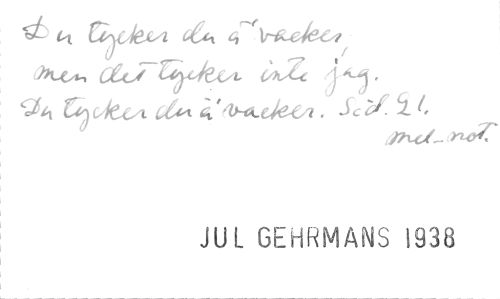 Du tycker du ä' vacker,
men det tycker inte jag.
Du tycker du ä' vacker. Sid. 21.
mel-not.
JUL GEHRMANS 1938